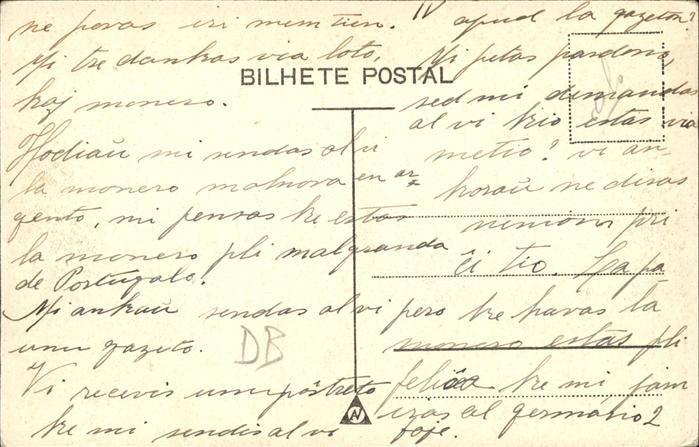 ne povas iri mem tien.
Mi tre dankas via loto,
kaj monero.
Hodiaŭ mi sendas al vi
la monero malnova en ar-
gento, mi pensas ke estas
la monero pli malgranda
de Portugalo!
Mi ankaŭ sendas al vi
unu gazeto.
Vi recevis unu poŝtreto
ke mi sendis al vi
IV
apud la gazeton?
Mi petas pardono,
sed mi demandas
al vi kio estas via
metio? vi an-
koraŭ ne diras
nenion pri
ĉi tio. La pa
pero ke havas la
monero estas pli
feliĉa ke mi jam
iras al germánio 2
foje.
BILHETE POSTAL
DB